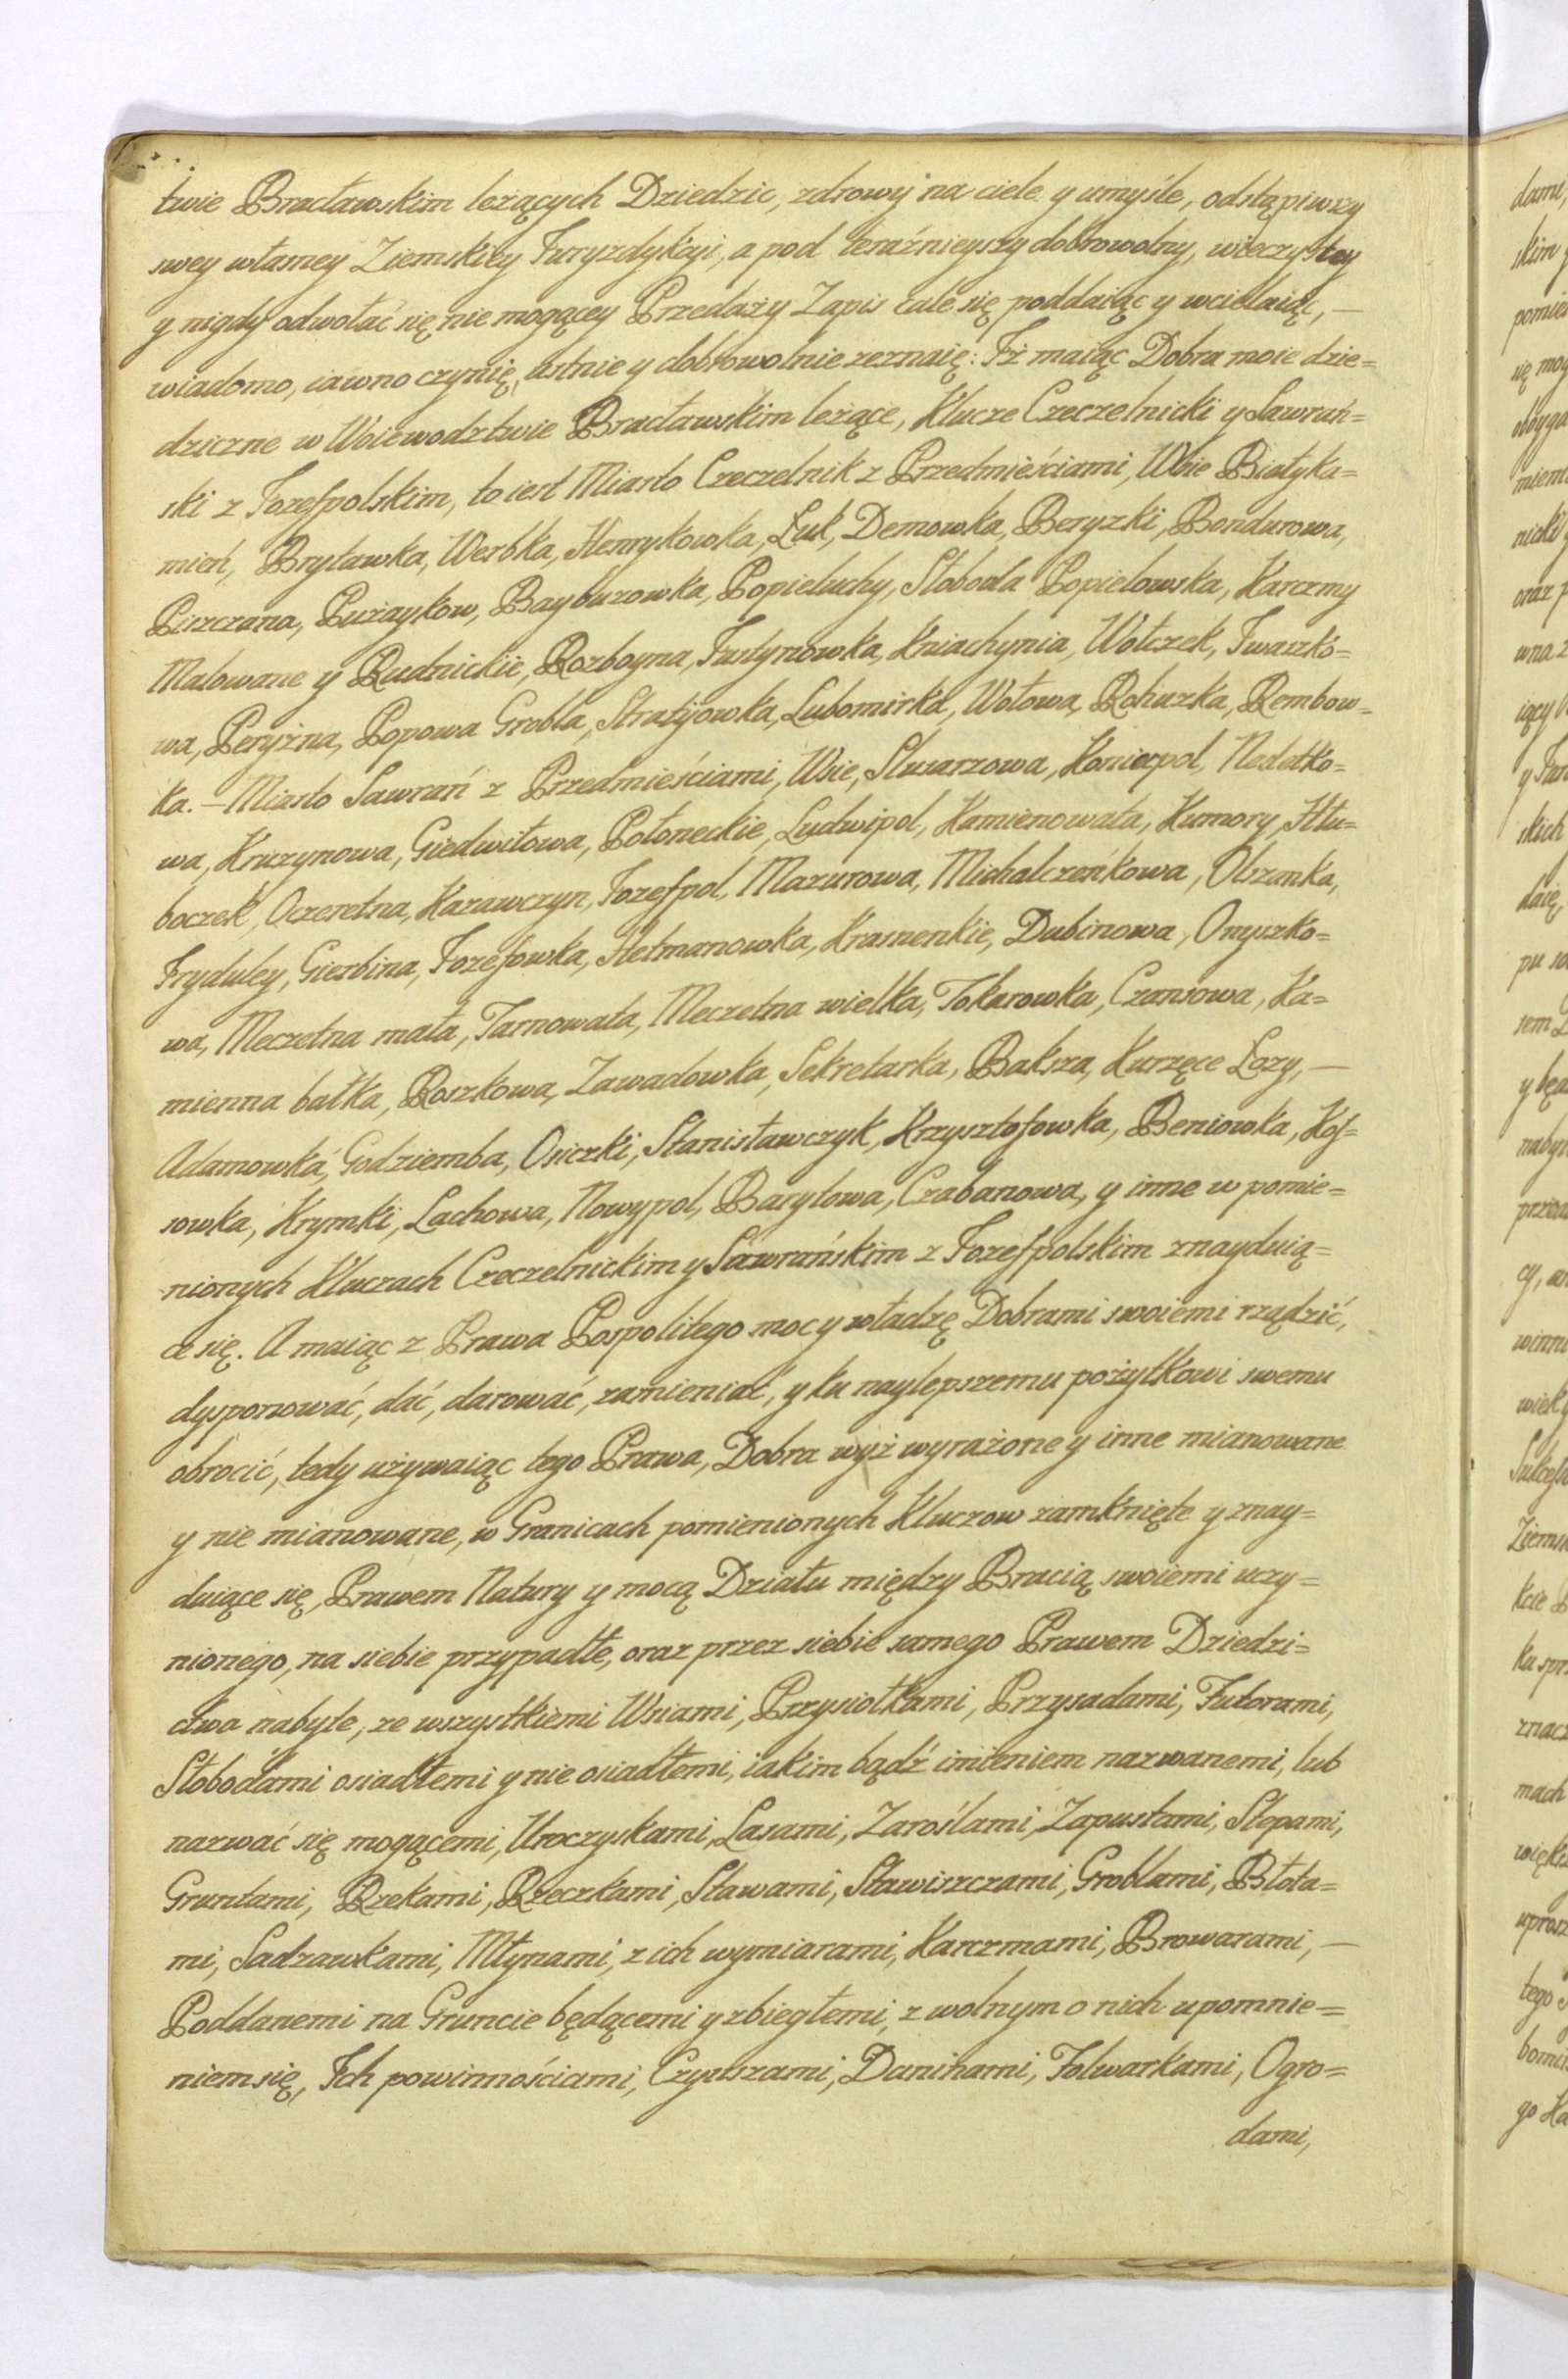 twie Bracławskim leżących Dziedzic, zdrowy na ciele y umyśle, odstąpiwszy
swey własney Ziemskiey Juryzdykcyi, a pod teraźnieyszy dobrowolny, wieczystey
y nigdy odwołać się nie mogącey Przedaży Zapis cale się poddaiąc y wcielaiąc, —
wiadomo, iawno czynię, ustnie y dobrowolnie zeznaię: Iż maiąc Dobra moie dzie=
dziczne w Woiewodztwie Bracławskim leżące, Klucze Czeczelnicki y Sawrań=
ski z Jozefpolskim, to iest Miasto Czeczelnik z Przedmieściami, Wsie Białyka=
mień, Brytawka, Werbka, Henrykowka, Luk, Demowka, Beryzki, Bondurowa,
Piszczana, Pużaykow, Bayburowka, Popieluchy, Słoboda Popielowska, Karczmy
Malowane y Rudnickie, Rozboyna, Justynowka, Kniachynia, Wołczek, Iwaszko=
wa, Peryżna, Popowa Grobla, Stratyjowka, Lubomirka, Wołowa, Rohuzka, Rembow=
ka. — Miasto Sawrań z Przedmieściami, Wsie, Slusarzowa, Koniecpol, Nedełko=
wa, Kruzynowa, Giedwiłowa, Połoneckie, Ludwipol, Kamienowata, Kumory, Hłu=
boczek, Oczeretna, Kazawczyn, Jozefpol, Mazurowa, Michalczeńkowa, Olszanka,
Fryduley, Gierbina, Jozefowka, Hetmanowka, Kramenkie, Dubinowa, Onyszko=
wa, Meczetna mała, Tarnowata, Meczetna wielka, Tokarowka, Czansowa, Ka=
mienna bałka, Roszkowa, Zawadowka, Sekretarka, Baksza, Kurzęce Lozy, —
Adamowka, Godziemba, Osiczki, Stanisławczyk, Krzysztofowka, Beniowka, Kos=
sowka, Krymki, Lachowa, Nowypol, Baryłowa, Czabanowa, y inne w pomie=
nionych Kluczach Czeczelnickim y Sawrańskim z Jozefpolskim znayduią=
ce się. A maiąc z Prawa Pospolitego moc y władzę Dobrami swoiemi rządzić,
dysponować, dać, darować, zamieniać, y ku naylepszemu pożytkowi swemu
obrocić, tedy używaiąc tego Prawa, Dobra wyż wyrażone y inne mianowane
y nie mianowane, w Granicach pomienionych Kluczow zamknięte y znay=
duiące się, Prawem Natury y mocą Działu między Bracią swoiemi uczy=
nionego, na siebie przypadłe, oraz przez siebie samego Prawem Dziedzi=
ctwa nabyte, ze wszystkiemi Wsiami, Przysiołkami, Przysadami, Futorami,
Słobodami osiadłemi y nie osiadłemi, iakim bądź imieniem nazwanemi, lub
nazwać się mogącemi, Uroczyskami, Lasami, Zaroślami, Zapustami, Stepami,
Gruntami, Rzekami, Rzeczkami, Stawami, Stawiszczami, Groblami, Błota=
mi, Sadzawkami, Młynami, z ich wymiarami, Karczmami, Browarami, —
Poddanemi na Gruncie będącemi y zbiegłemi, z wolnym o nich upomnie=
niem się, Ich powinnościami, Czynszami, Daninami, Folwarkami, Ogro=
dami,